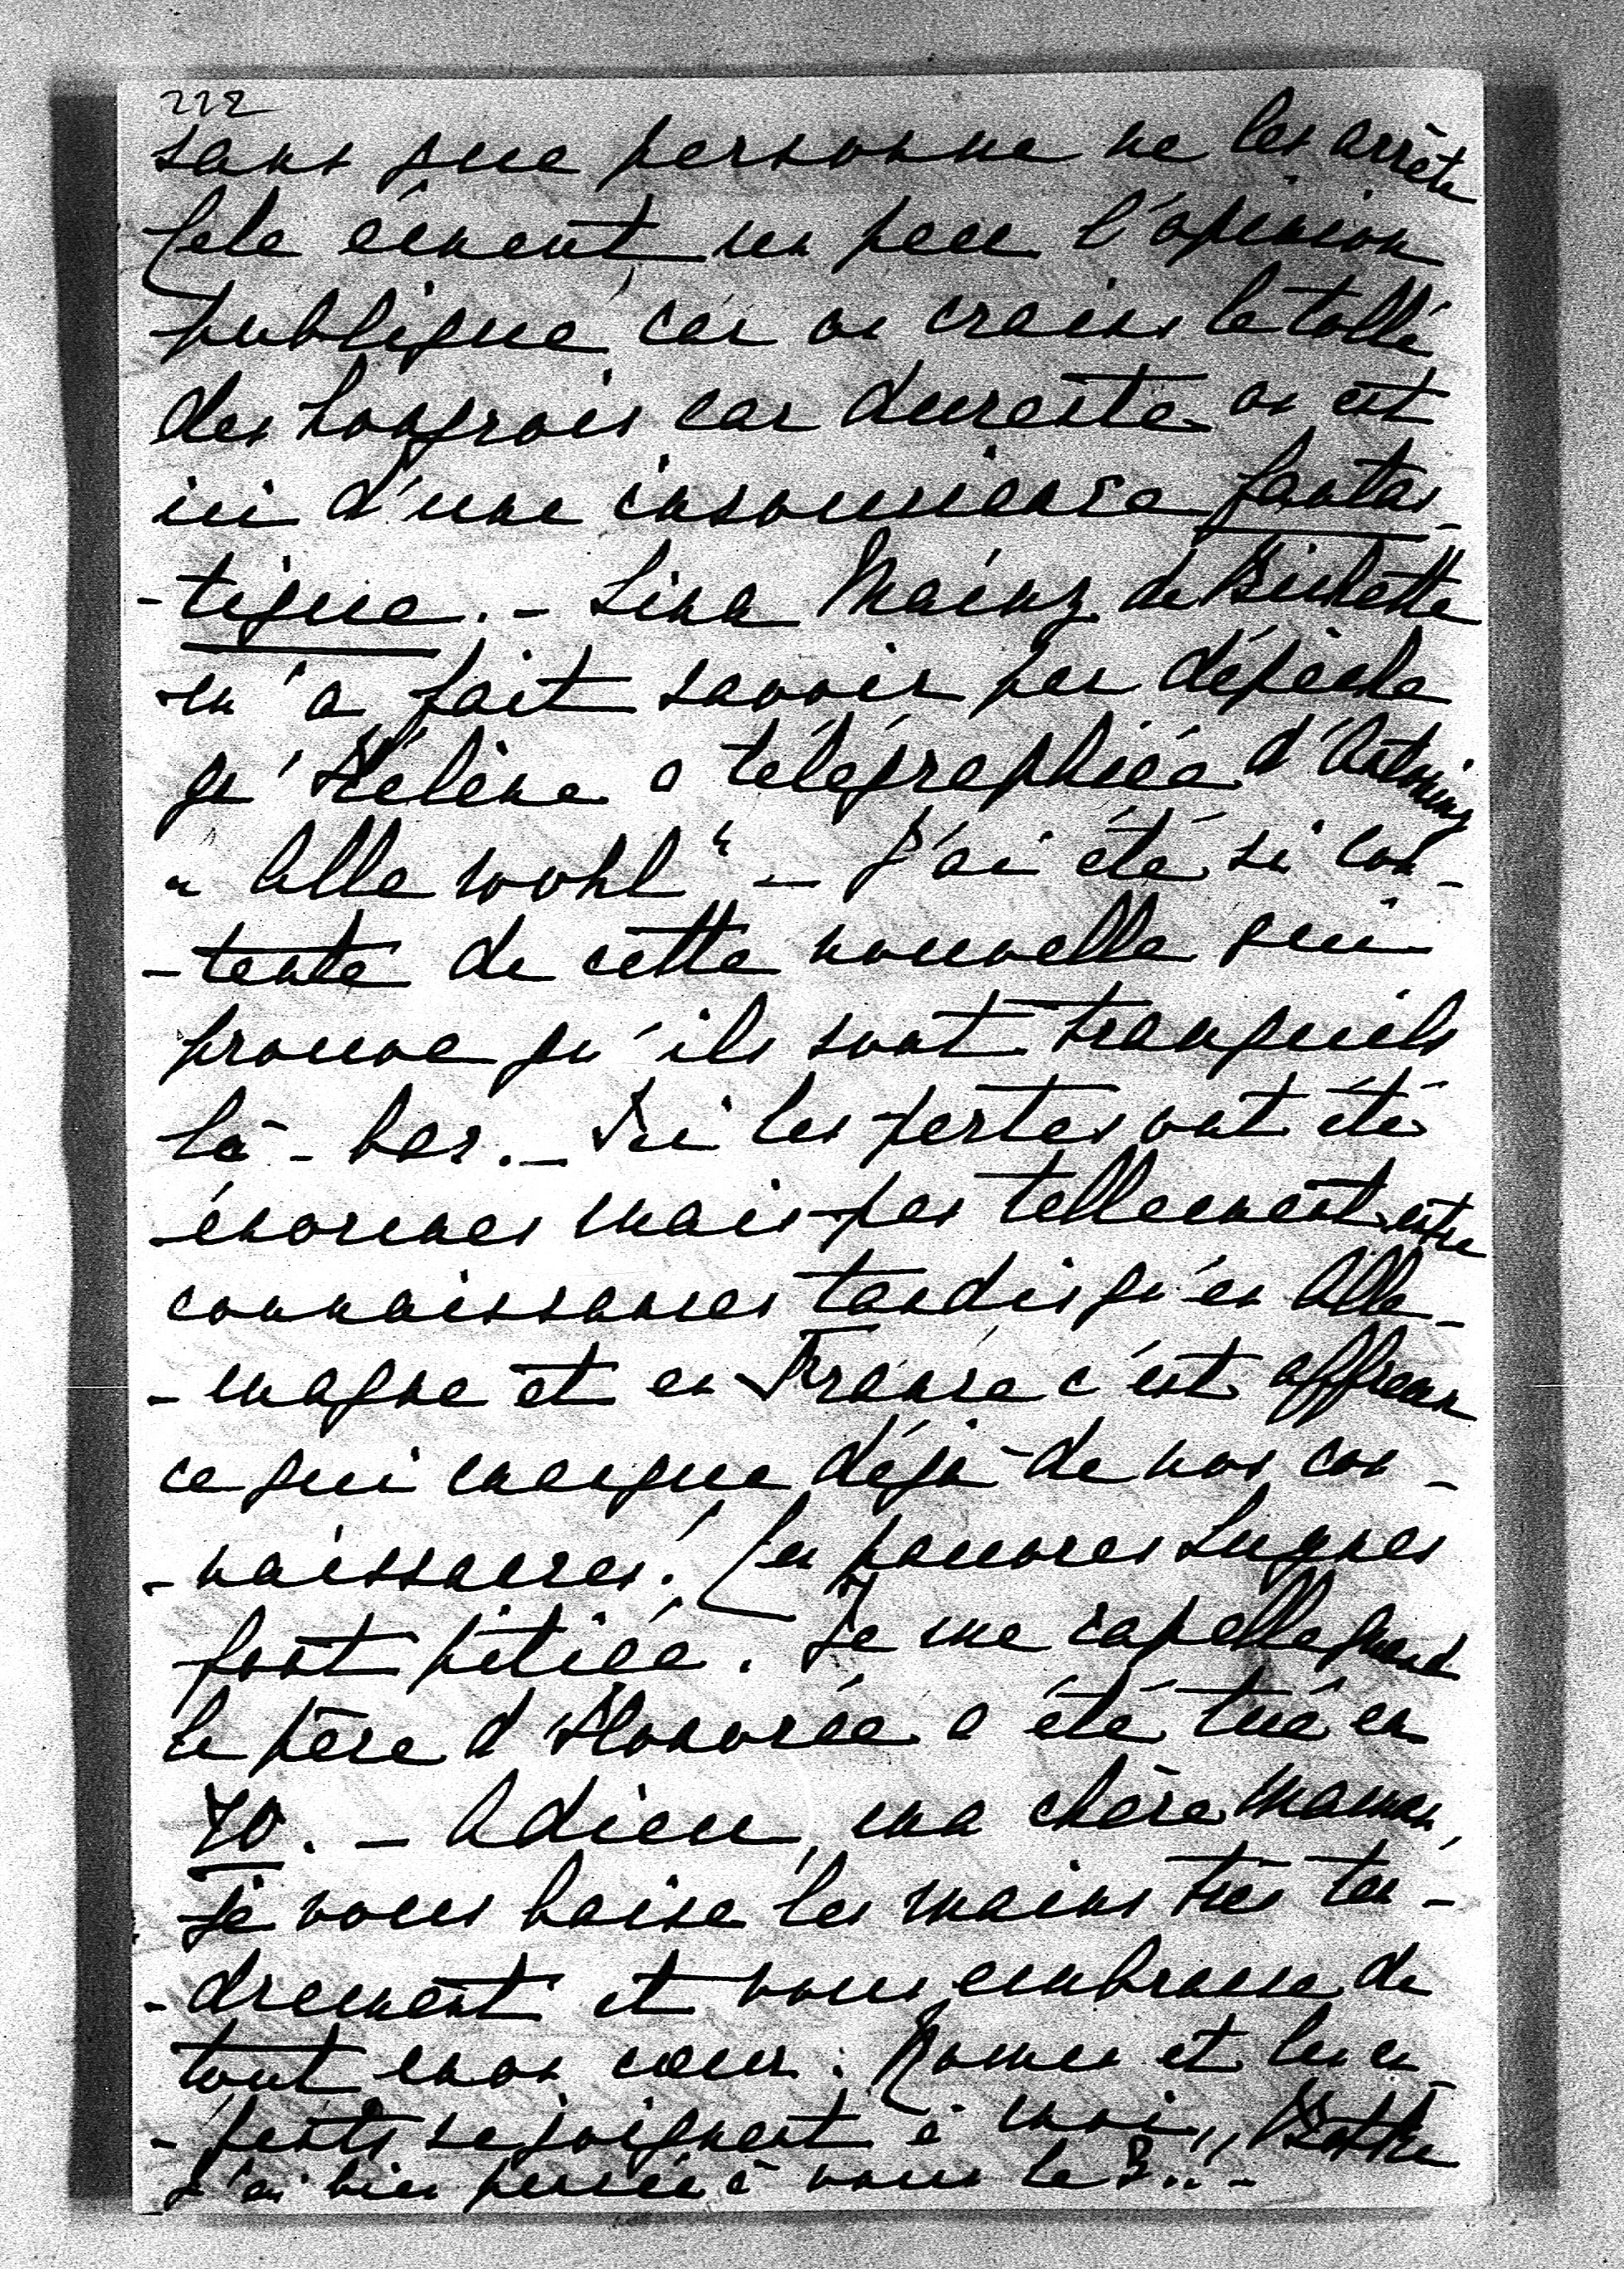 222
sans que personne ne les arrête
Cela émeut un peu l'opinion
publique car on crains le tollé
des hongrois car dureste on est
ici d'une insouciance fantas-
-tique. - Lina Mainz de Bichette
m'a fait savoir par dépêche
qu'Hélène a télégraphiée d'Antoniny
„Alle wohl" - J'ai été si con-
-tente de cette nouvelle qui
prouve qu'ils sont tranquils
là-bas. - Ici les pertes ont été
énormes mais pas tellement entre
connaissances tandis qu'en Alle-
-magne et en France c'est affreux
ce qui manque déjà de nos con-
-naissances! Les pauvres Luynes
font pitiée. Je me rapelle quand
le père d'Honorée a été tué en
70. - Adieu, ma chère Maman,
je vous baise les mains très ten-
-drement et vous embrasse de
tout mon cœur. Roman et les en-
-fants se joignent à moi,
J'ai bien pensée à vous le 3..! -